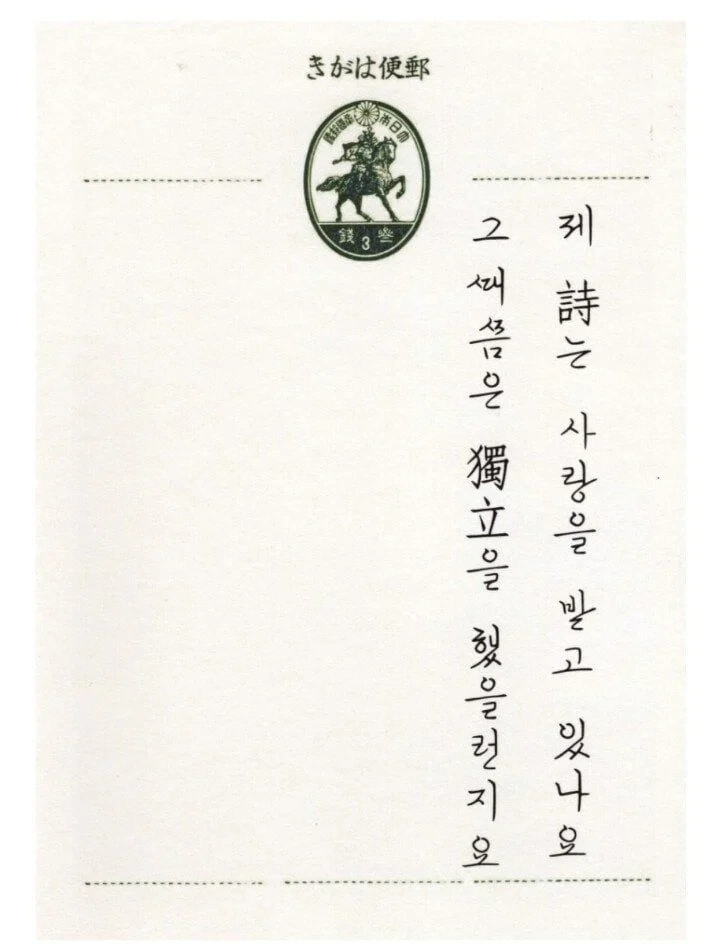 郵便はがき
大日本帝國郵便
參3錢
제 詩는 사랑을 받고 있나요
그 때쯤은 獨立을 했을런지요